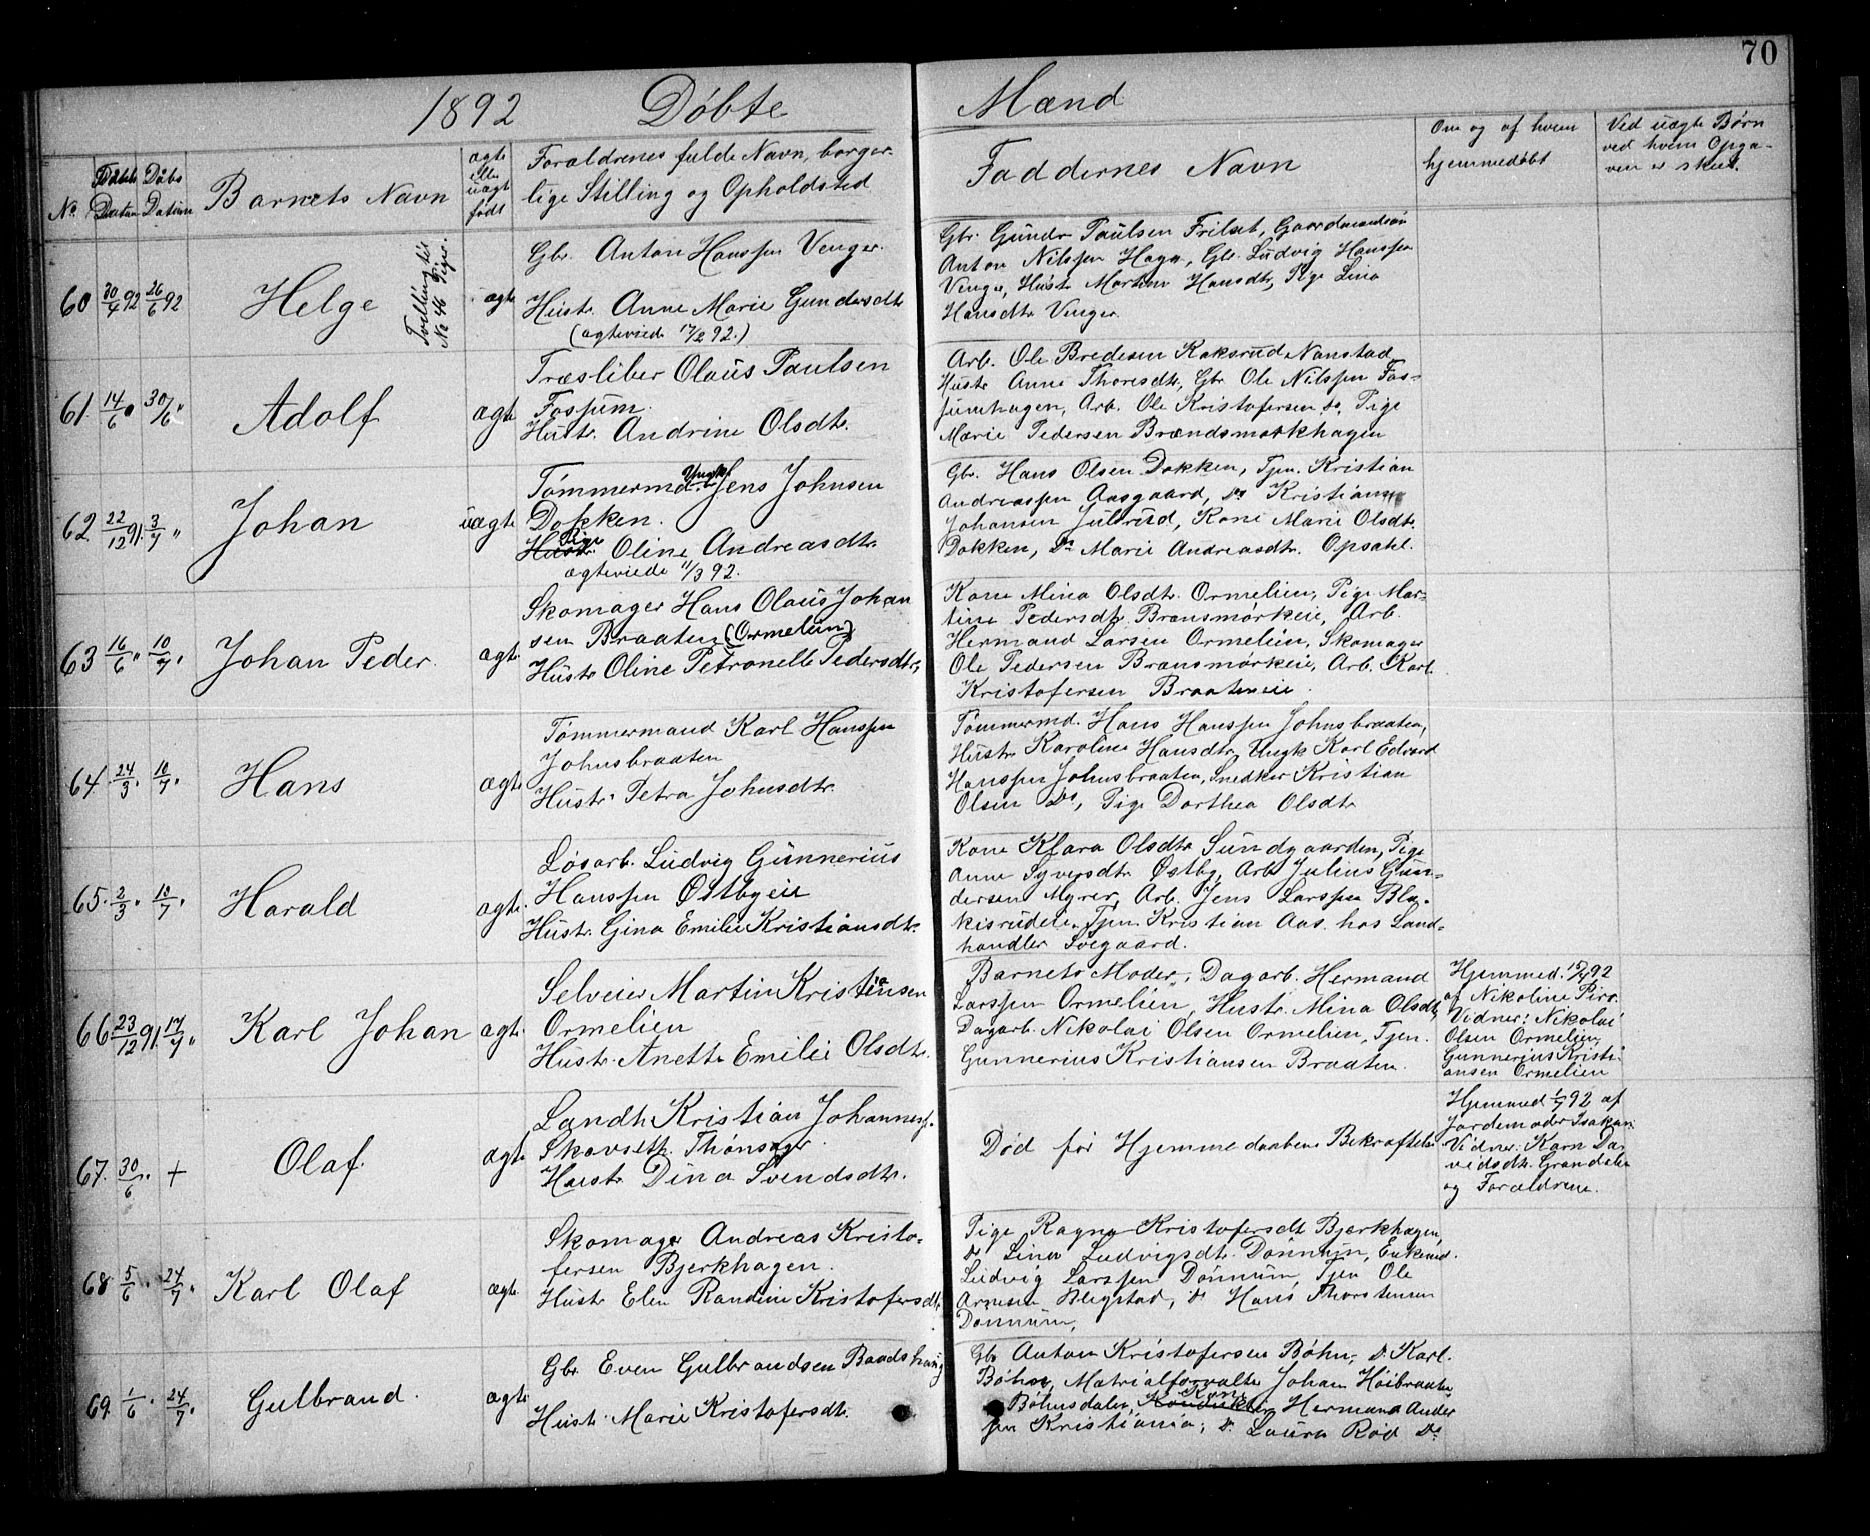 70
1892 Døbte Mænd
No
Fødsels Datum
Dåbs Datum
Barnets Navn
ægte eller uægte født
Forældrenes fulde Navn, borger-
lige Stilling og Opholdsted
Faddernes Navn
Om og af hvem
hjemmedøbt
Ved uægte Børn
ved hvem Opga-
ven er skeet.
60 30/4 92 26/6 92
Helge
Tvilling til
No 46 Piger.
ægte
Gbr. Anton Hanssen Venger.
Hustr. Anne Marie Gundersdtr
(ægteviede 17/2 92.)
Gbr. Gundr Paulsen Frilset, Gaardmandssøn
Anton Nilssen Haga, Gbr. Ludvig Hanssen
Venger, Hustr Martine Hansdtr, Pige Lina
Hansdtr Venger
61. 14/6 " 30/6 "
Adolf
ægte
Træsliber Olaus Paulsen
Fossum.
Hustr. Andrine Olsdtr.
Arb. Ole Bredesen Koksrud Nanstad
Hustr Anne Thoresdtr, Gbr Ole Nilssen Fos-
sumhagen, Arb. Ole Kristofersen Do, Pige
Marie Pedersen Brændsmørkhagen
62 22/12 91. 3/7 "
Johan
uægte
Tømmermd. Ungk. Jens Johnsen
Dokken.
Hustr. Pige Oline Andreasdtr.
ægteviede 11/3 92.
Gbr. Hans Olsen Dokken, Tjen. Kristian
Andreassen Aasgaard, Do Kristians
Johansen Julsrud, Kone Marie Olsdtr.
Dokken, Do Marie Andreasdtr. Opsahl.
63 16/6 " 10/7 "
Johan Peder.
ægte
Skomager Hans Olaus Johan
sen Braaten (Ormelien)
Hustr Oline Petronelle Pedersdtr,
Kone Mina Olsdtr. Ormelien, Pige Mar-
tine Pedersdtr. Brænsmørkeie, Arb.
Hermand Larsen Ormelien, Skomager
Ole Pedersen Brænsmørkeie, Arb. Karl
Kristofersen Braateneie.
64. 24/3 " 10/7 "
Hans
ægte
Tømmermand Karl Hanssen
Johnsbraaten
Hustr. Petra Johnsdtr.
Tømmermd. Hans Hanssen Johnsbraaten,
Hustr Karoline Hansdtr, Ungk Karl Edvard
Hanssen Johnsbraaten, Snedker Kristian
Olsen Do, Pige Dorthea Olsdtr
65. 2/3 " 10/7 "
Harald
ægte.
Løsarb. Ludvig Gunnerius
Hanssen Østbyeie
Hustr. Gina Emilie Kristiansdtr.
Kone Klara Olsdtr Sundgaarden, Pige
Anne Syversdtr Østby, Arb Julius Gun-
dersen Myrer, Arb. Jens Larssen Bla-
kisrudeie, Tjen Kristian Aas hos Land-
handler Svegaard.
66 23/12 91. 17/7 "
Karl Johan
ægte.
Selveier Martin Kristiansen
Ormelien
Hustr. Anette Emilie Olsdtr.
Barnets Moder, Dagarb. Hermand
Larssen Ormelien, Hustr. Mina Olsdtr,
Dagarb. Nikolai Olsen Ormelien, Tjen.
Gunnerius Kristiansen Braaten.
Hjemmed. 15/4 92
af Nikoline Pirr.
Vidner: Nikolai
Olsen Ormelien,
Gunnerius Kristi-
ansen Ormelien
67. 30/6 " +
Olaf.
ægte
Landh. Kristian Johanness.
Skovseth. Thonsager.
Hustr Dina Svendsdtr.
Død før Hjemmedaabens Bekræftelse
Hjemmed 1/7 92 af
Jordemoder Isaksen
Vidner. Karn Da-
vidsdtr. Grandelen
og Forældrene.
68 5/6 " 24/7 "
Karl Olaf
ægte.
Skomager Andreas Kristo-
fersen Bjerkhagen.
Hustr Elen Randine Kristofersdtr.
Pige Ragna Kristofersdtr Bjerkhagen,
Do Lina Ludvigsdtr. Dønnum, Enkemd.
Ludvig Larssen Dønnum, Tjen Ole
Arnesen Blegstad, Do Hans Thorstensen
Dønnum,
69. 1/6 " 24/7 "
Gulbrand.
ægte
Gbr Even Gulbrandsen Baadshaug
Hustr. Marie Kristofersdtr.
Gbr Anton Kristofersen Bøhn, Do Karl.
Bøhn, Matrialforvalter Johan Høibraaten
Bøhnsdalen, Konduktør Kone Hermana Ander
sen Kristiania, Do Laura Rød Do